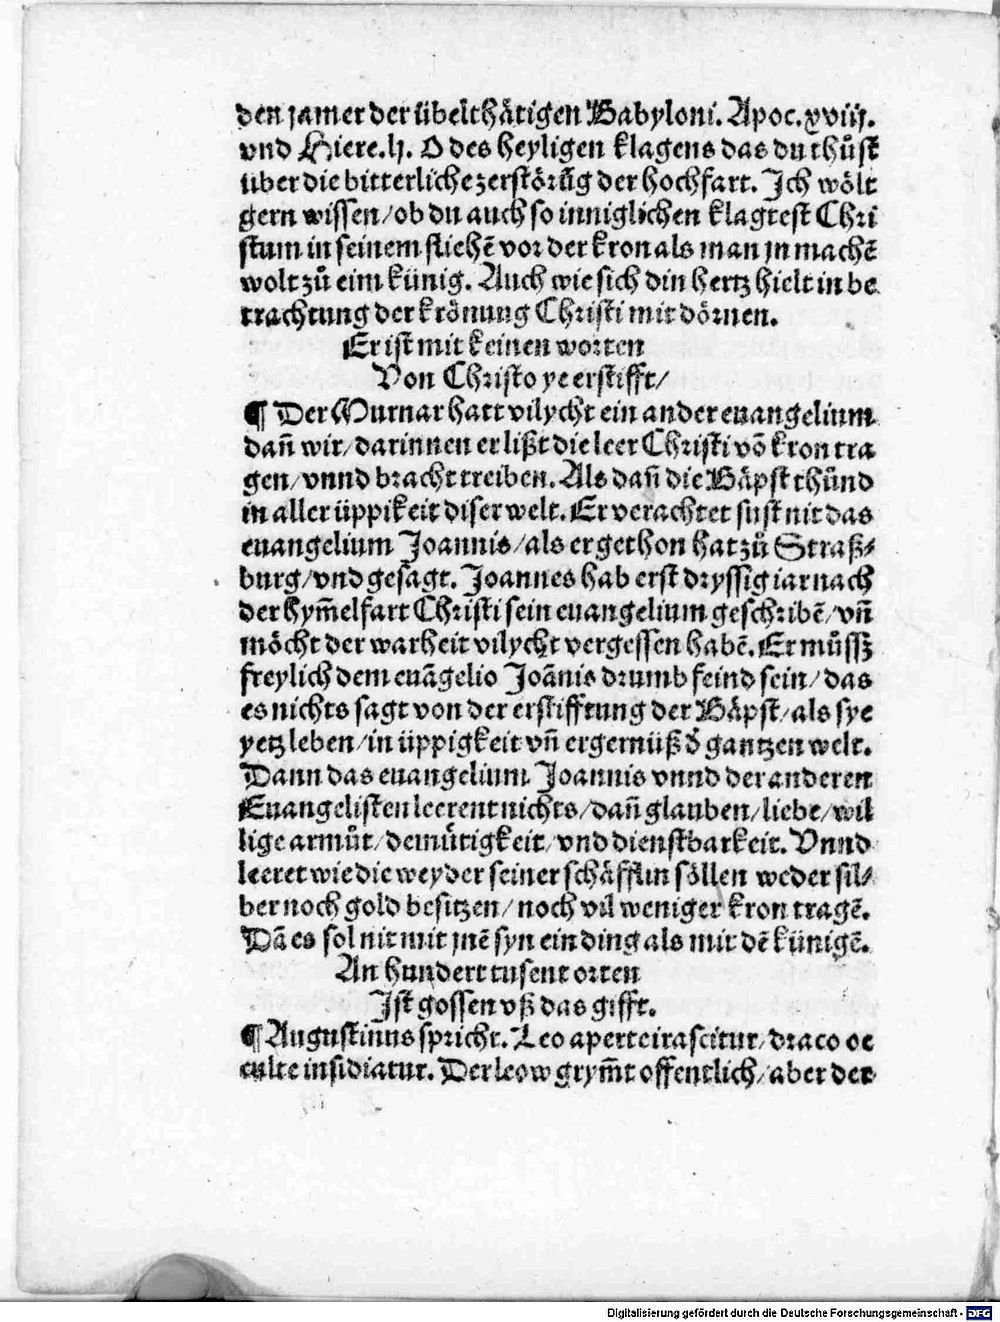 den jamer der übelthätigen Babyloni. Apoc. xviij.
vnd Hiere. lj. O des heyligen klagens das du thůst
über die bitterliche zerstörũg der hochfart. Ich wölt
gern wissen/ ob du auch so inniglichen klagtest Chri
stum in seinem fliehẽ vor der kron als man jn machẽ
wolt zů eim künig. Auch wie sich din hertz hielt in be
trachtung der krönung Christi mit dörnen.
Er ist mit keinen worten
Von Christo ye erstifft/
¶ Der Murnar hatt vilycht ein ander euangelium
dañ wir/ darinnen er lißt die leer Christi võ kron tra
gen/ vnnd bracht treiben. Als dañ die Bäpst thůnd
in aller üppikeit diser welt. Er verachtet sust nit das
euangelium Joannis/ als er gethon hat zů Straß⸗
burg/ vnd gesagt. Joannes hab erst dryssig iar nach
der hym̃elfart Christi sein euangelium geschribẽ/ vñ
möcht der warheit vilycht vergessen habẽ. Er můssz
freylich dem euãgelio Joãnis drumb feind sein/ das
es nichts sagt von der erstifftung der Bäpst/ als sye
yetz leben/ in üppigkeit vñ ergernüß d̓ gantzen welt.
Dann das euangelium Joannis vnnd der anderen
Euangelisten leerent nichts/ dañ glauben/ liebe/ wil
lige armůt/ demůtigkeit/ vnd dienstbarkeit. Vnnd
leeret wie die weyder seiner schäfflin söllen weder sil⸗
ber noch gold besitzen/ noch vil weniger kron tragẽ.
Dã es sol nit mit jnẽ syn ein ding als mit dẽ künigẽ.
An hundert tusent orten
Ist gossen vß das gifft.
¶ Augustinus spricht. Leo aperte irascitur/ draco oc
culte insidiatur. Der leow grym̃t offentlich/ aber der
Digitalisierung gefördert durch die Deutsche Forschungsgemeinschaft - DFG